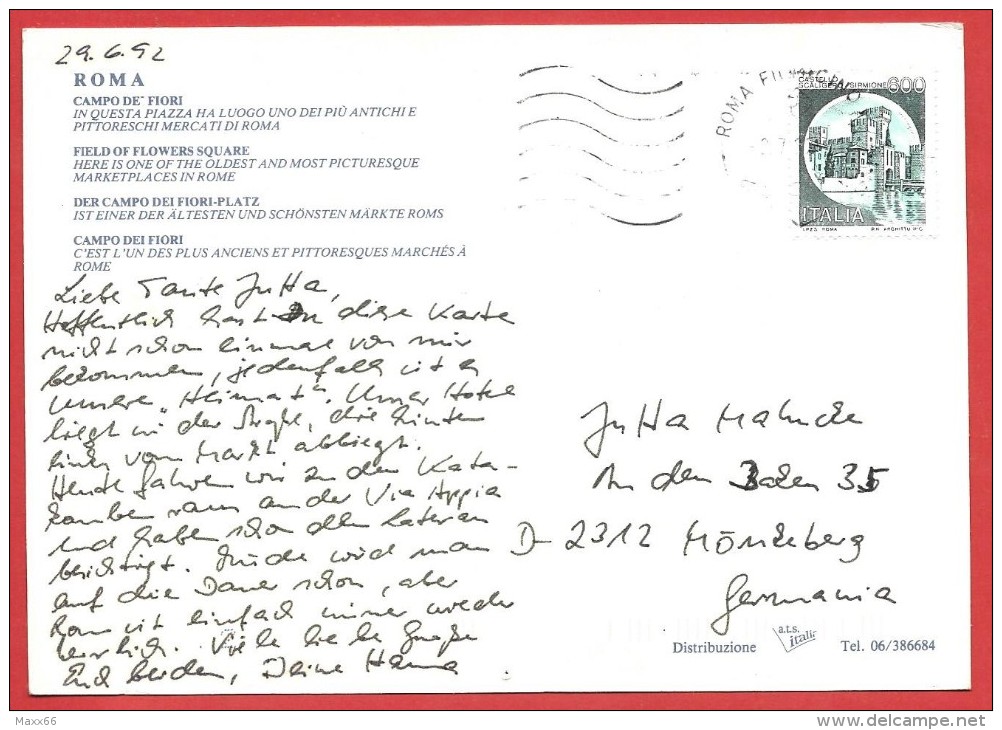 29.6.92
ROMA
CAMPO DE' FIORI
IN QUESTA PIAZZA HA LUOGO UNO DEI PIÙ ANTICHI E
PITTORESCHI MERCATI DI ROMA
FIELD OF FLOWERS SQUARE
HERE IS ONE OF THE OLDEST AND MOST PICTURESQUE
MARKETPLACES IN ROME
DER CAMPO DEI FIORI-PLATZ
IST EINER DER ÄLTESTEN UND SCHÖNSTEN MÄRKTE ROMS
CAMPO DEI FIORI
C'EST L'UN DES PLUS ANCIENS ET PITTORESQUES MARCHÉS À
ROME
Liebe Tante Jutta,
Hoffentlich hast Du diese Karte
nicht schon einmal von mir
bekommen, jedenfalls ist es
unsere „Heimat". Unser Hotel
liegt in der Straße, die hinten
links vom Markt abbiegt.
Heute fahren wir zu den Kata-
komben raus an der Via Appia
und haben schon den Lateran
besichtigt. Müde wird man
auf die Dauer schon, aber
Rom ist einfach immer wieder
herrlich. Viele liebe Grüße
Euch beiden, Deine Hanna
ROMA FIUMICINO
CASTELLO
SCALIGERO/SIRMIONE 600
ITALIA
I.P.Z.S. ROMA
Jutta
An den 35
D-2312 Mönkeberg
Germania
Distribuzione a.t.s. italia Tel. 06/386684
Maxx66
www.delcampe.net